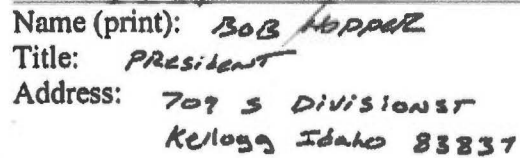 Name (print): BOB HOPPER
Title: PRESIDENT
Address: 709 S DIVISION ST
Kellogg Idaho 83837